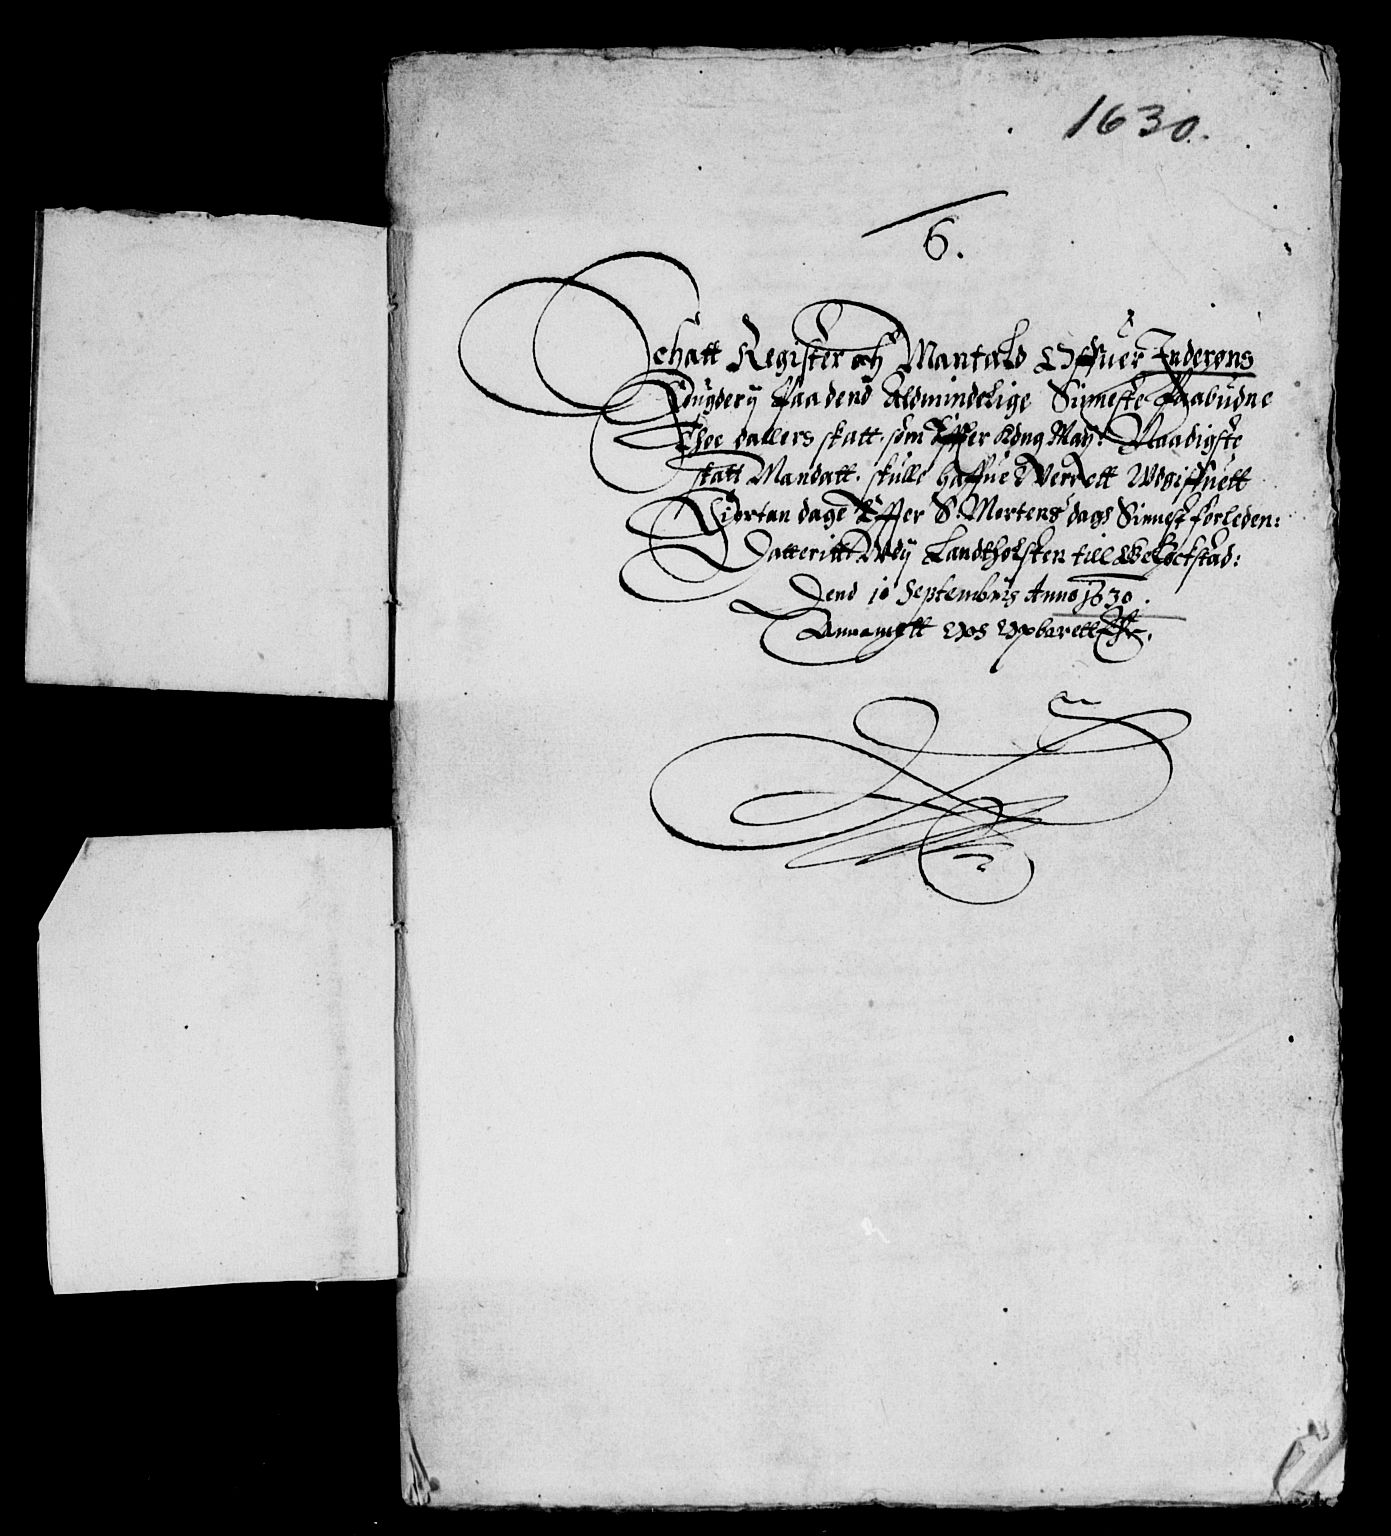 1630.
6.
Schatt Register och Mantald Offuer Inderøns
Fougderÿ Paa dend Aldmindelige Sinneste Paabudne
Thoe dallers skatt som Effter Kong: May: Naadigste
skatt Mandatt skulle haffue Verrett Wdgiffuett
Fiortan dage Effter S: Mortens dags Sinnest forleden:
Datteritt Wdÿ Landtholsten till
Dend 10 Septembris Anno 1630.
Annammett Och Opbarett